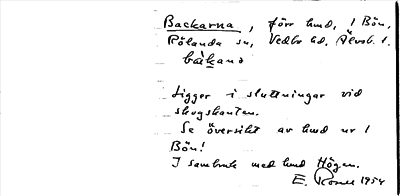 Backarna, förr hmd, 1 Bön,
Rölanda sn, Vedbo hd, Älvsb. l.
bàkana
Ligger i sluttningar vid
skogskanten.
Se översikt av hmd ur 1
Bön!
I sambruk med hmd Högen.
E. 1954